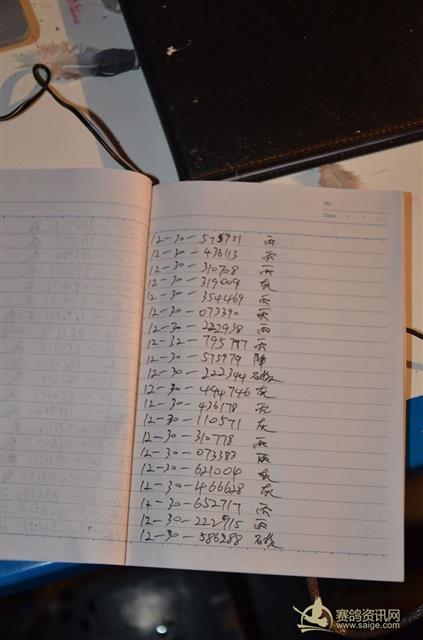 No.
Date
12-30-575751 雨
12-30-436113 雨
12-30-310708 雨
12-30-319009 灰
12-30-354469 雨
12-30-073390 雨
12-30-222938 雨
12-32-795797 雨
12-30-575979
12-30-322344
12-30-494746 灰
12-30-436178 雨
12-30-110571 灰
12-30-310778 雨
12-30-073383 雨
12-30-621004 灰
12-30-466628 灰
12-30-652717 雨
12-30-222915 雨
12-30-586288
赛鸽资讯网
www.saige.com